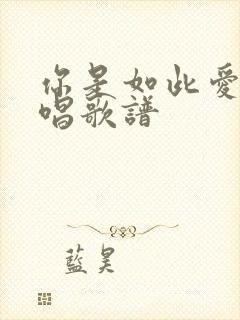 你是如此愛
唱歌譜
藍昊